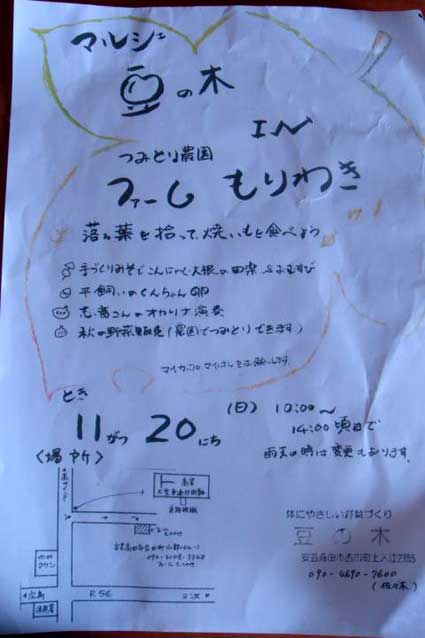 マルシェ
豆の木
IN
つみとり農園
ファーム もりわき
落ち葉を拾って、焼いもを食べよう
手づくりみそでこんにゃく・大根の田楽 &おむすび
平飼いのくんちゃん卵
さんのオカリナ演奏
秋の野菜販売(農園でつみとりできます)
マイカップ、マイはしをお願いします。
とき
11がつ 20にち
(日) 10:00〜
14:00頃まで
雨天の時は変更もあります。
〈場所〉
体にやさしい野菜づくり
豆の木
安芸高田市吉田町上入江2355
090-4690-7600
(佐々木)
広島
R54
三次